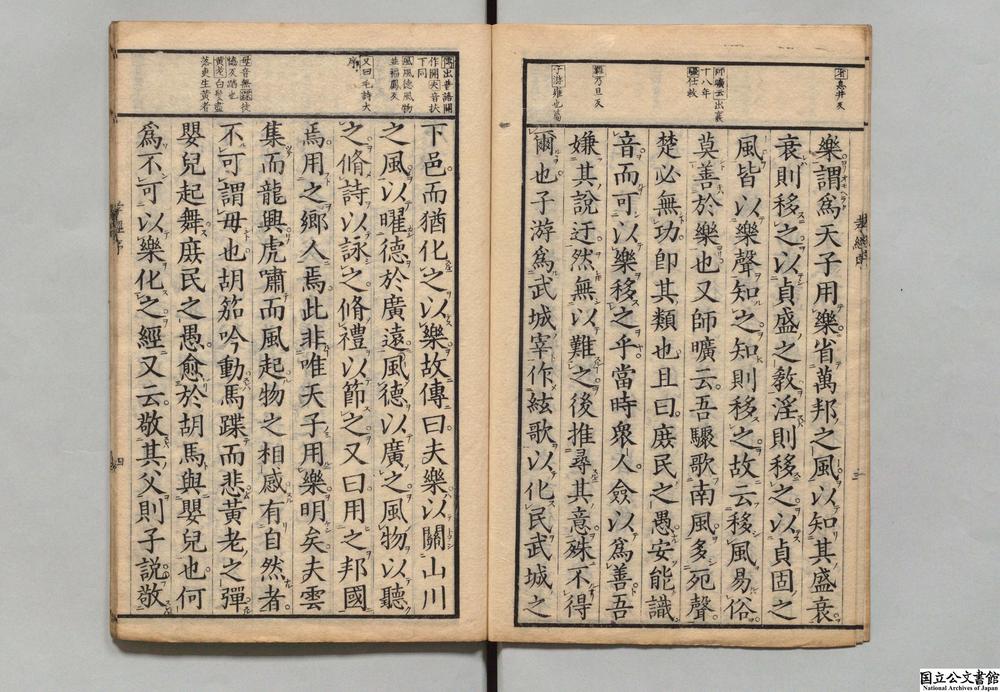 樂謂爲天子用樂省萬邦之風以知其盛衰
衰則移之以貞盛之敎淫則移之以貞固之
風皆以樂聲知之知則移之故云移風易俗
莫善於樂也又師曠云吾驟歌南風多死聲
楚必無功卽其類也且曰庻民之愚安能識
音而可以樂移之乎當時衆人僉以爲善吾
嫌其說迂然無以難之後推尋其意殊不得
爾也子游爲武城宰作絃歌以化民武城之
省息井反
師曠云出襄
十八年
難乃旦反
子游雍也篇
三
下邑而猶化之以樂故傳曰夫樂以關山川
之風以曜德於廣遠風德以廣之風物以聽
之脩詩以詠之脩禮以節之又曰用之邦國
焉用之鄉人焉此非唯天子用樂明矣夫雲
集而龍興虎嘯而風起物之相感有自然者
不可謂毋也胡笳吟動馬蹀而悲黃老之彈
嬰兒起舞庻民之愚愈於胡馬與嬰兒也何
爲不可以樂化之經又云敬其父則子說敬
傳出晉語關
作開夫音扶
下同
風風德風物
並福鳳反
又曰毛詩大
序
毋音無蹀徒
愜反蹈也
黃老白髮盡
落更生黃者
四
国立公文書館
National Archives of Japan